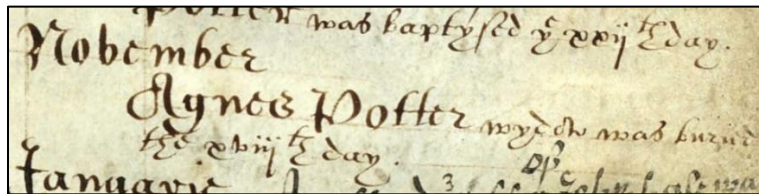 Potter was baptysed yͤ xxijth day.
November
Agnes Potter wydow was buried
the xviijth day.
Januarie